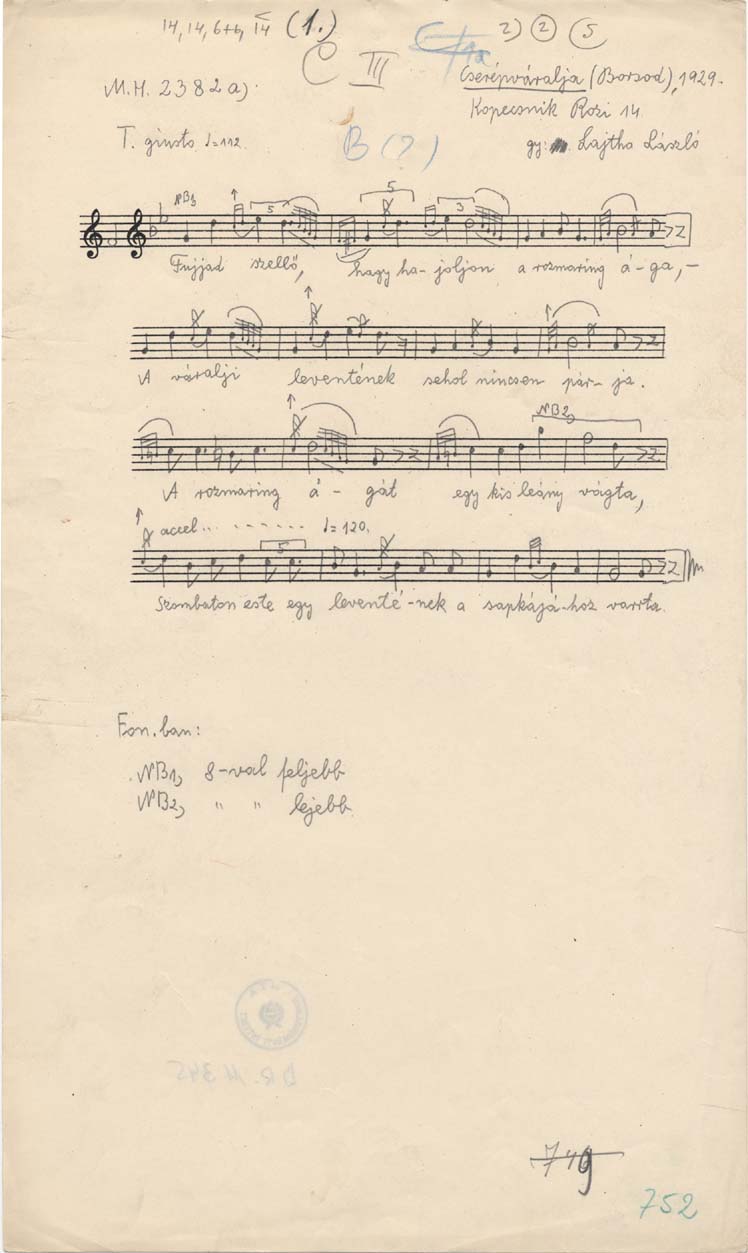 14, 14, 6+6, 14 (1.) 2) 2 5
C III
M.H. 2382a)
Cserépváralja (Borsod), 1929.
Kopecsnik Rozi 14
T. giusto ♩=112.
B (?)
gy: Lajtha László
NB1,
5 5 3
Fujjad szellő, hagy ha- joljon a rozmaring á-ga,-
A váralji leventének sehol nincsen pár- ja.
NB2,
A rozmaring á - gát egy kis leány vágta,
accel.. - - - - - - ♩=120.
5
Szombaton este egy leventé-nek a sapkájá-hoz varrta.
Fon.ban:
NB1, 8-val feljebb
NB2, " " lejebb.
749
752